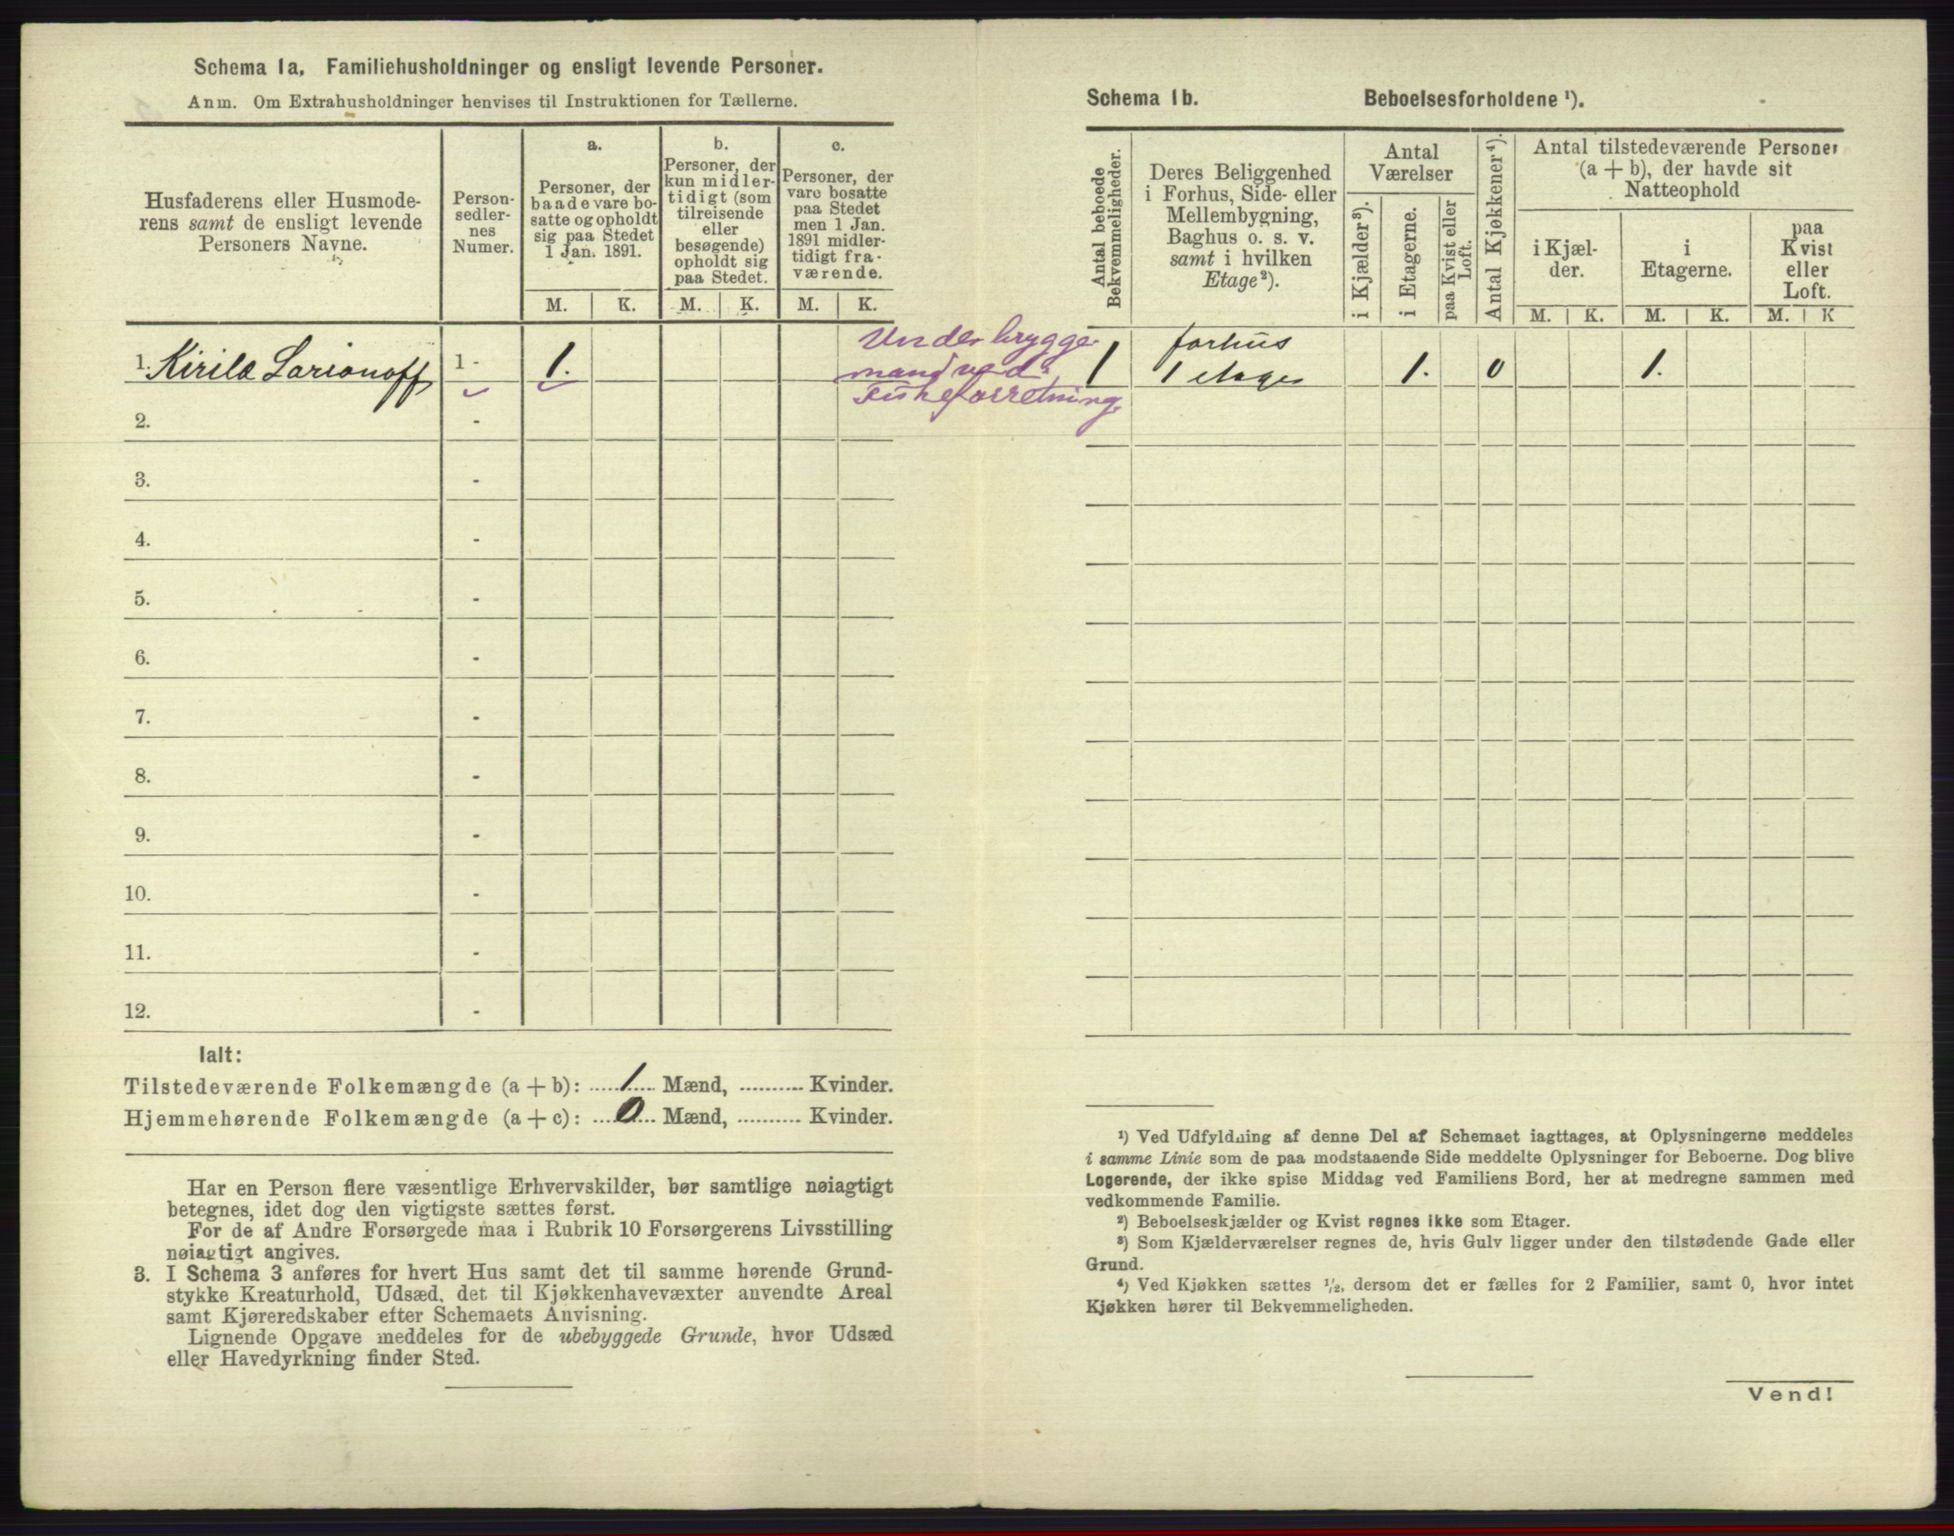 Schema 1a. Familiehusholdninger og ensligt levende Personer.
Anm. Om Extrahusholdninger henvises til Instruktionen for Tællerne.
Husfaderens eller Husmode-
rens samt de ensligt levende
Personers Navne.
Person-
sedler-
nes
Numer.
a.
Personer, der
baade vare bo-
satte og opholdt
sig paa Stedet
1 Jan. 1891.
b.
Personer, der
kun midler-
tidigt (som
tilreisende
eller
besøgende)
opholdt sig
paa Stedet.
c.
Personer, der
vare bosatte
paa Stedet
men 1 Jan.
1891 midler-
tidigt fra-
værende.
M. K. M. K. M. K.
1. Kirila Larionoff 1 - 1.
Underbrygge
mand ved
Fiskeforretning.
2. -
3. -
4. -
5. -
6. -
7. -
8. -
9. -
10. -
11. -
12. -
Ialt:
Tilstedeværende Folkemængde (a + b): 1 Mænd, .......... Kvinder.
Hjemmehørende Folkemængde (a + c): 0 Mænd, .......... Kvinder.
Har en Person flere væsentlige Erhvervskilder, bør samtlige nøiagtigt
betegnes, idet dog den vigtigste sættes først.
For de af Andre Forsørgede maa i Rubrik 10 Forsørgerens Livsstilling
nøiagtigt angives.
3. I Schema 3 anføres for hvert Hus samt det til samme hørende Grund-
stykke Kreaturhold, Udsæd, det til Kjøkkenhavevæxter anvendte Areal
samt Kjøreredskaber efter Schemaets Anvisning.
Lignende Opgave meddeles for de ubebyggede Grunde, hvor Udsæd
eller Havedyrkning finder Sted.
Schema 1b. Beboelsesforholdene ¹).
Antal beboede
Bekvemmeligheder.
Deres Beliggenhed
i Forhus, Side- eller
Mellembygning,
Baghus o. s. v.
samt i hvilken
Etage²).
Antal
Værelser
i Kjælder³).
i Etagerne.
paa Kvist eller
Loft.
Antal Kjøkkener⁴).
Antal tilstedeværende Personer
(a + b), der havde sit
Natteophold
i Kjæl-
der.
i
Etagerne.
paa
Kvist
eller
Loft.
M. K. M. K. M. K
1 forhus
1 etage 1. 0 1.
¹) Ved Udfyldning af denne Del af Schemaet iagttages, at Oplysningerne meddeles
i samme Linie som de paa modstaaende Side meddelte Oplysninger for Beboerne. Dog blive
Logerende, der ikke spise Middag ved Familiens Bord, her at medregne sammen med
vedkommende Familie.
²) Beboelseskjælder og Kvist regnes ikke som Etager.
³) Som Kjælderværelser regnes de, hvis Gulv ligger under den tilstødende Gade eller
Grund.
⁴) Ved Kjøkken sættes ¹/₂, dersom det er fælles for 2 Familier, samt 0, hvor intet
Kjøkken hører til Bekvemmeligheden.
Vend!